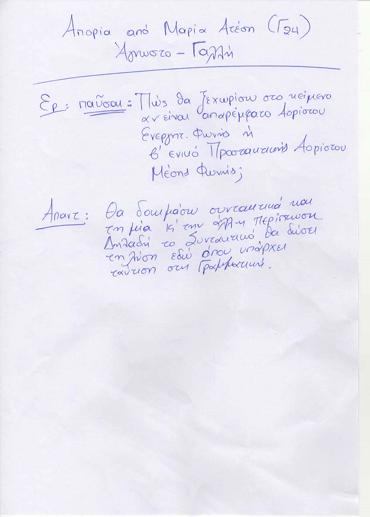 Απορία από Μαρία Ατέση (Γ34)
Άγνωστο - Γαλλή
Ερ: παῦσαι: Πώς θα ξεχωρίσω στο κείμενο
αν είναι απαρέμφατο Αορίστου
Ενεργητ. Φωνής ή
β' ενικό Προστακτικής Αορίστου
Μέσης Φωνής;
Απαντ: Θα δοκιμάσω συντακτικά και
τη μία κ' την άλλη περίπτωση
Δηλαδή το Συντακτικό θα δώσει
τη λύση εδώ όπου υπάρχει
ταύτιση στη Γραμματική.